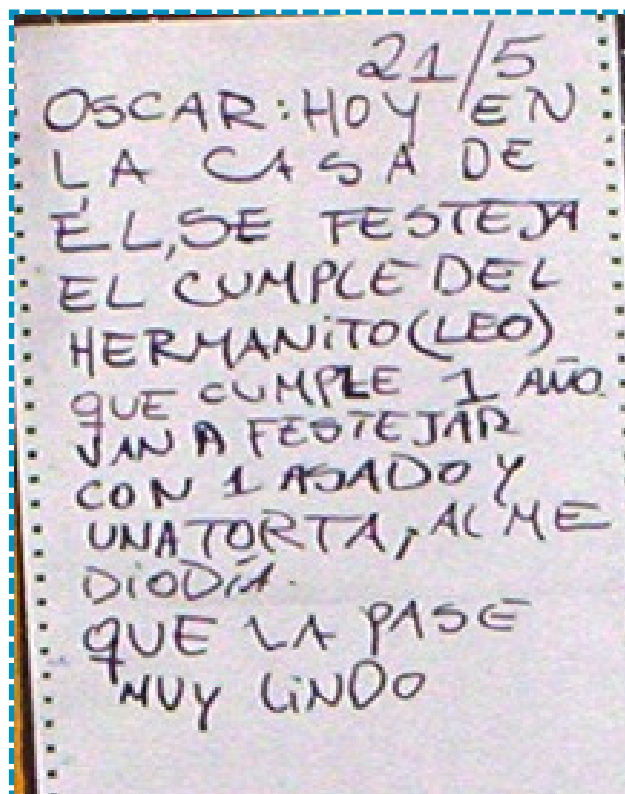 21/5
OSCAR: HOY EN
LA CASA DE
ÉL, SE FESTEJA
EL CUMPLE DEL
HERMANiTO (LEO)
QUE CUMPLE 1 AÑO.
VAN A FESTEJAR
CON 1 ASADO Y
UNA TORTA, AL ME
DiODÍA.
QUE LA PASE
MUY LiNDO